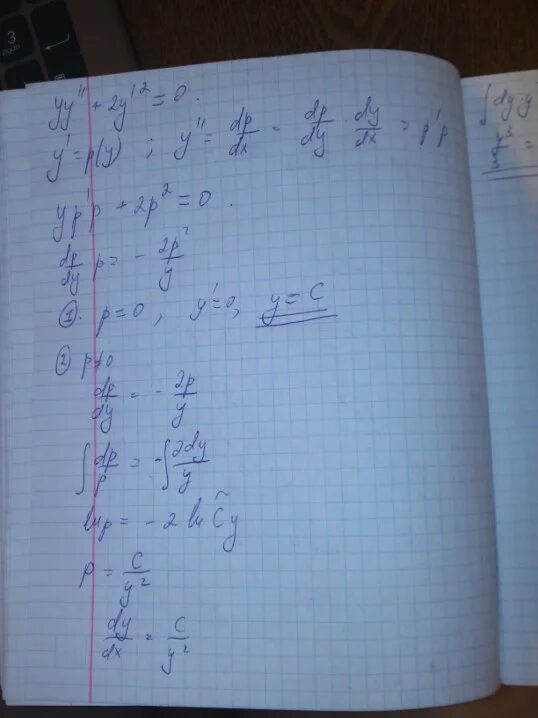 yy'' + 2y'² = 0.
y' = p(y) ; y'' = dp/dx = dp/dy · dy/dx = p'p
yp'p + 2p² = 0.
dp/dy p = - 2p²/y
①. p = 0, y' = 0, y = C
② p ≠ 0
dp/dy = - 2p/y
∫ dp/p = -∫ 2dy/y
ln p = -2 ln C̃y
p = C/y²
dy/dx = C/y²
∫ dy·y
3